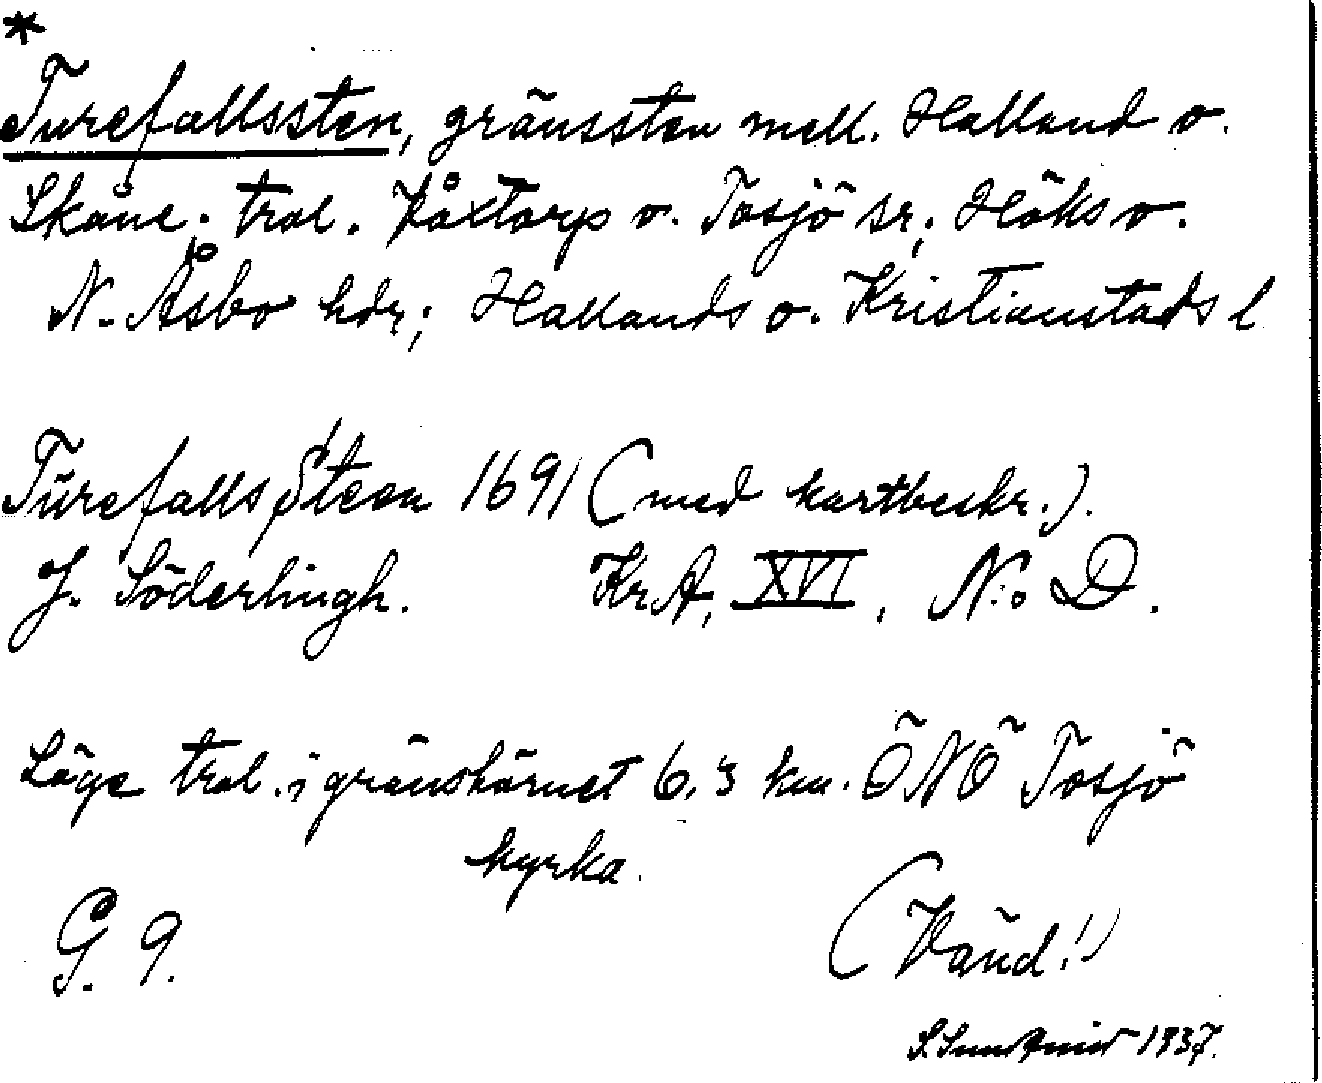 *
Turefallssten, gränssten mell. Halland o.
Skåne. trol. Våxtorp o. Tåsjö sr; Höks o.
N. Åsbo hdr; Hallands o. Kristianstads l
Tŭrefalls Steen 1691 (med kartbeskr.).
J. Söderlingh. KrA, XVI, N:o D.
Läge trol. i gränshörnet 6,3 km. ÖNÖ Tosjö
kyrka.
G. 9. (Vänd!)
S. Sundqvist 1937.